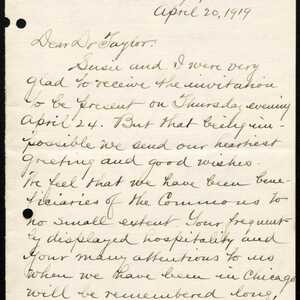 April 20, 1919
Dear Dr Taylor.
Susie and I were very
glad to receive the invitation
to be present on Thursday evening
April 24. But that being im-
possible we send our heartiest
greeting and good wishes.
We feel that we have been bene-
ficiaries of the Commons to
no small extent Your frequent-
ly displayed hospitality and
your many attentions to us
when we have been in Chicago
will be remembered long,